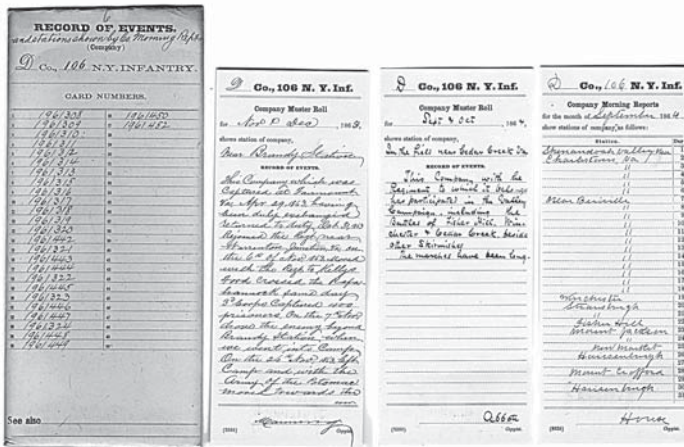 6
RECORD OF EVENTS.
and stations shown by Co. Morning Repts.
(Company)
D Co., 106 N.Y. INFANTRY.
CARD NUMBERS.
1961308
1961309
1961310
1961311
1961312
1961314
1961313
1961315
1961316
1961317
1961318
1961319
1961320
1961442
1961321
1961443
1961444
1961322
1961445
1961323
1961446
1961447
1961324
1961448
1961449
1961450
1961452
See also
D Co., 106 N. Y. Inf.
Company Muster Roll
for Nov & Dec, 1863.
shows station of company,
Near Brandy Station
RECORD OF EVENTS.
This Company which was
Captured at Fairmount
Va Apr. 29, 1863 having
been duly exchanged
returned to duty
Rejoined the Regt near
Warrenton Junction Va on
the 6th of Nov 1863 moved
with the Regt to Kellys
Ford crossed the Rapa-
hannock same day
3d Corps Captured 400
prisoners On the 7th Nov
drove the enemy beyond
Brandy Station, where
we went into Camp
On the 26th Nov, 1863 left
Camp and with the
Army of the Potomac
moved towards the
Manning
Copyist.
D Co., 106 N. Y. Inf.
Company Muster Roll
for Sept & Oct, 1864.
shows station of company,
In the Field near Cedar Creek Va
RECORD OF EVENTS.
This Company with the
Regiment to which it belongs
has participated in the Valley
Campaign, including the
Battles of Fisher Hill, Win-
chester & Cedar Creek, beside
other Skirmishes
The marches have been long.
Abbott
Copyist.
D Co., 106 N. Y. Inf.
Company Morning Reports
for the month of September 1864
show stations of company, as follows:
Station.
Shenandoah Valley
Charlestown, Va
Near
Winchester
Strausburgh
Fisher Hill
Mount Jackson
New Market
Harrisenburgh
Mount Crofford
Harrisenburgh
House
Copyist.